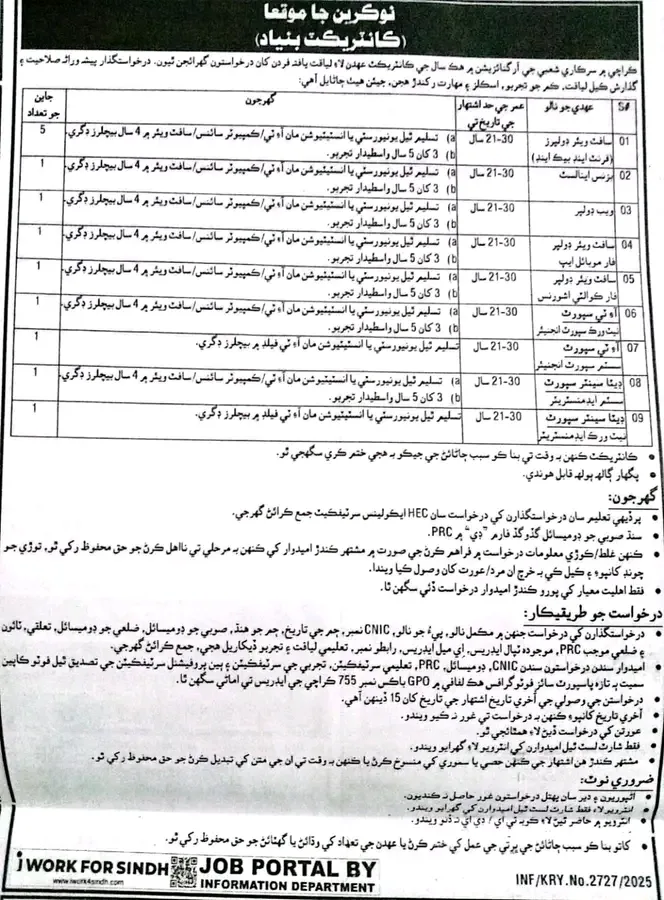 نوڪرين جا موقعا
(ڪانٽريڪٽ بنياد)
ڪراچي ۾ سرڪاري شعبي جي آرگنائزيشن ۾ هڪ سال جي ڪانٽريڪٽ عهدن لاءِ لياقت يافته فردن کان درخواستون گهرائجن ٿيون. درخواستگذار پيشه ورانه صلاحيت ۽
گذارش ڪيل لياقت، ڪم جو تجربو، اسڪلز ۽ مهارت رکندڙ هجن، جيئن هيٺ ڄاڻايل آهي:
S# عهدي جو نالو عمر جي حد اشتهار جي تاريخ تي گهرجون جاين جو تعداد
01 سافٽ ويئر ڊولپرز (فرنٽ اينڊ بيڪ اينڊ) 21-30 سال a) تسليم ٿيل يونيورسٽي يا انسٽيٽيوشن مان آءِ ٽي/ڪمپيوٽر سائنس/سافٽ ويئر ۾ 4 سال بيچلرز ڊگري. 5
b) 3 کان 5 سال واسطيدار تجربو.
02 بزنس اينالسٽ 21-30 سال a) تسليم ٿيل يونيورسٽي يا انسٽيٽيوشن مان آءِ ٽي/ڪمپيوٽر سائنس/سافٽ ويئر ۾ 4 سال بيچلرز ڊگري. 1
b) 3 کان 5 سال واسطيدار تجربو.
03 ويب ڊولپر 21-30 سال a) تسليم ٿيل يونيورسٽي يا انسٽيٽيوشن مان آءِ ٽي/ڪمپيوٽر سائنس/سافٽ ويئر ۾ 4 سال بيچلرز ڊگري. 1
b) 3 کان 5 سال واسطيدار تجربو.
04 سافٽ ويئر ڊولپر فار موبائل ايپ 21-30 سال a) تسليم ٿيل يونيورسٽي يا انسٽيٽيوشن مان آءِ ٽي/ڪمپيوٽر سائنس/سافٽ ويئر ۾ 4 سال بيچلرز ڊگري. 1
b) 3 کان 5 سال واسطيدار تجربو.
05 سافٽ ويئر ڊولپر فار ڪوالٽي اشورنس 21-30 سال a) تسليم ٿيل يونيورسٽي يا انسٽيٽيوشن مان آءِ ٽي/ڪمپيوٽر سائنس/سافٽ ويئر ۾ 4 سال بيچلرز ڊگري. 1
b) 3 کان 5 سال واسطيدار تجربو.
06 آءِ ٽي سپورٽ نيٽ ورڪ سپورٽ انجنيئر 21-30 سال a) تسليم ٿيل يونيورسٽي يا انسٽيٽيوشن مان آءِ ٽي/ڪمپيوٽر سائنس/سافٽ ويئر ۾ 4 سال بيچلرز ڊگري. 1
b) 3 کان 5 سال واسطيدار تجربو.
07 آءِ ٽي سپورٽ سسٽم سپورٽ انجنيئر 21-30 سال تسليم ٿيل يونيورسٽي يا انسٽيٽيوشن مان آءِ ٽي فيلڊ ۾ بيچلرز ڊگري. 1
08 ڊيٽا سينٽر سپورٽ سسٽم ايڊمنسٽريٽر 21-30 سال a) تسليم ٿيل يونيورسٽي يا انسٽيٽيوشن مان آءِ ٽي/ڪمپيوٽر سائنس/سافٽ ويئر ۾ 4 سال بيچلرز ڊگري. 1
b) 3 کان 5 سال واسطيدار تجربو.
09 ڊيٽا سينٽر سپورٽ نيٽ ورڪ ايڊمنسٽريٽر 21-30 سال تسليم ٿيل يونيورسٽي يا انسٽيٽيوشن مان آءِ ٽي فيلڊ ۾ بيچلرز ڊگري. 1
• ڪانٽريڪٽ ڪنهن به وقت تي بنا ڪو سبب ڄاڻائڻ جي جيڪو به هجي ختم ڪري سگهجي ٿو.
• پگهار ڳالهه ٻولهه قابل هوندي.
گهرجون:
• پرڏيهي تعليم سان درخواستگذارن کي درخواست سان HEC ايڪولينس سرٽيفڪيٽ جمع ڪرائڻ گهرجي.
• سنڌ صوبي جو ڊوميسائل گڏوگڏ فارم ”ڊي“ ۾ PRC.
• ڪنهن غلط/ڪوڙي معلومات درخواست ۾ فراهم ڪرڻ جي صورت ۾ مشتهر ڪندڙ اميدوار کي ڪنهن به مرحلي تي نااهل ڪرڻ جو حق محفوظ رکي ٿو، توڙي جو
چونڊ ڪانپوءِ ۽ ڪيل ڪي به خرچ ان مرد/عورت کان وصول ڪيا ويندا.
• فقط اهليت معيار کي پورو ڪندڙ اميدوار درخواست ڏئي سگهن ٿا.
درخواست جو طريقيڪار:
• درخواستگذارن کي درخواست جنهن ۾ مڪمل نالو، پيءُ جو نالو، CNIC نمبر، ڄم جي تاريخ، ڄم جو هنڌ، صوبي جو ڊوميسائل، ضلعي جو ڊوميسائل، تعلقي، ٽائون
۽ ضلعي موجب PRC، موجوده ٽپال ايڊريس، اِي ميل ايڊريس، رابطر نمبر، تعليمي لياقت ۽ تجربو ڏيکاريل هجي، جمع ڪرائڻ گهرجي.
• اميدوار سندن درخواستون سندن CNIC، ڊوميسائل، PRC، تعليمي سرٽيفڪيٽن، تجربي جي سرٽيفڪيٽن ۽ ٻين پروفيشنل سرٽيفڪيٽن جي تصديق ٿيل فوٽو ڪاپين
سميت ٻه تازه پاسپورٽ سائز فوٽوگرافس هڪ لفافي ۾ GPO باڪس نمبر 755 ڪراچي جي ايڊريس تي اماڻي سگهن ٿا.
• درخواستن جي وصولي جي آخري تاريخ اشتهار جي تاريخ کان 15 ڏينهن آهي.
• آخري تاريخ کانپوءِ ڪنهن به درخواست تي غور نه ڪيو ويندو.
• عورتن کي درخواست ڏيڻ لاءِ همٿائجي ٿو.
• فقط شارٽ لسٽ ٿيل اميدوارن کي انٽرويو لاءِ گهرايو ويندو.
• مشتهر ڪندڙ هن اشتهار جي ڪنهن حصي يا سموري کي منسوخ ڪرڻ يا ڪنهن به وقت تي ان جي متن کي تبديل ڪرڻ جو حق محفوظ رکي ٿو.
ضروري نوٽ:
• اڻپوريون ۽ دير سان پهتل درخواستون غور حاصل نه ڪنديون.
• انٽرويو لاءِ فقط شارٽ لسٽ ٿيل اميدوارن کي گهرايو ويندو.
• انٽرويو ۾ حاضر ٿيڻ لاءِ ڪو به ٽي اي/ ڊي اي نه ڏنو ويندو.
• کاتو بنا ڪو سبب ڄاڻائڻ جي ڀرتي جي عمل کي ختم ڪرڻ يا عهدن جي تعداد کي وڌائڻ يا گهٽائڻ جو حق محفوظ رکي ٿو.
i WORK FOR SINDH
www.iwork4sindh.com
JOB PORTAL BY
INFORMATION DEPARTMENT
INF/KRY.No.2727/2025